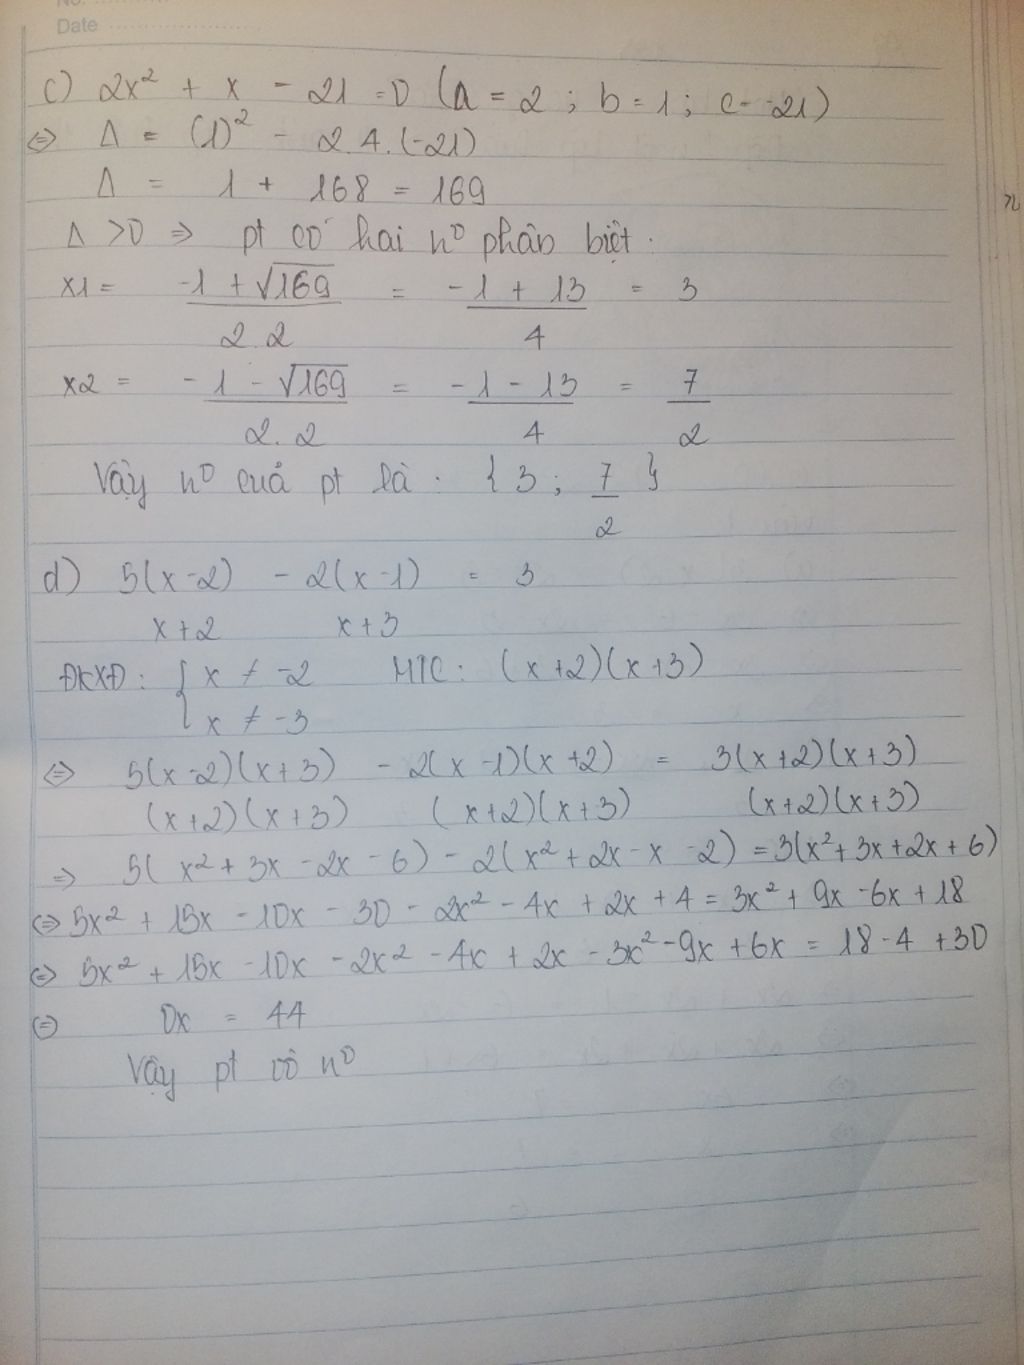 No.
Date
c) 2x² + x - 21 = 0 (a = 2 ; b = 1 ; c = -21)
⇔ Δ = (1)² - 2.4.(-21)
Δ = 1 + 168 = 169
Δ > 0 ⇒ pt có hai n⁰ phân biệt.
x1 = -1 + √169 / 2.2 = -1 + 13 / 4 = 3
x2 = -1 - √169 / 2.2 = -1 - 13 / 4 = 7 / 2
Vậy n⁰ cuả pt là : { 3 ; 7 / 2 }
d) 5(x-2) - 2(x-1) = 3
x+2 x+3
ĐKXĐ : { x ≠ -2 MTC : (x+2)(x+3)
x ≠ -3
⇔ 5(x-2)(x+3) - 2(x-1)(x+2) = 3(x+2)(x+3)
(x+2)(x+3) (x+2)(x+3) (x+2)(x+3)
⇒ 5(x² + 3x - 2x - 6) - 2(x² + 2x - x - 2) = 3(x² + 3x + 2x + 6)
⇔ 5x² + 15x - 10x - 30 - 2x² - 4x + 2x + 4 = 3x² + 9x - 6x + 18
⇔ 5x² + 15x - 10x - 2x² - 4x + 2x - 3x² - 9x + 6x = 18 - 4 + 30
⇔ 0x = 44
Vậy pt vô n⁰